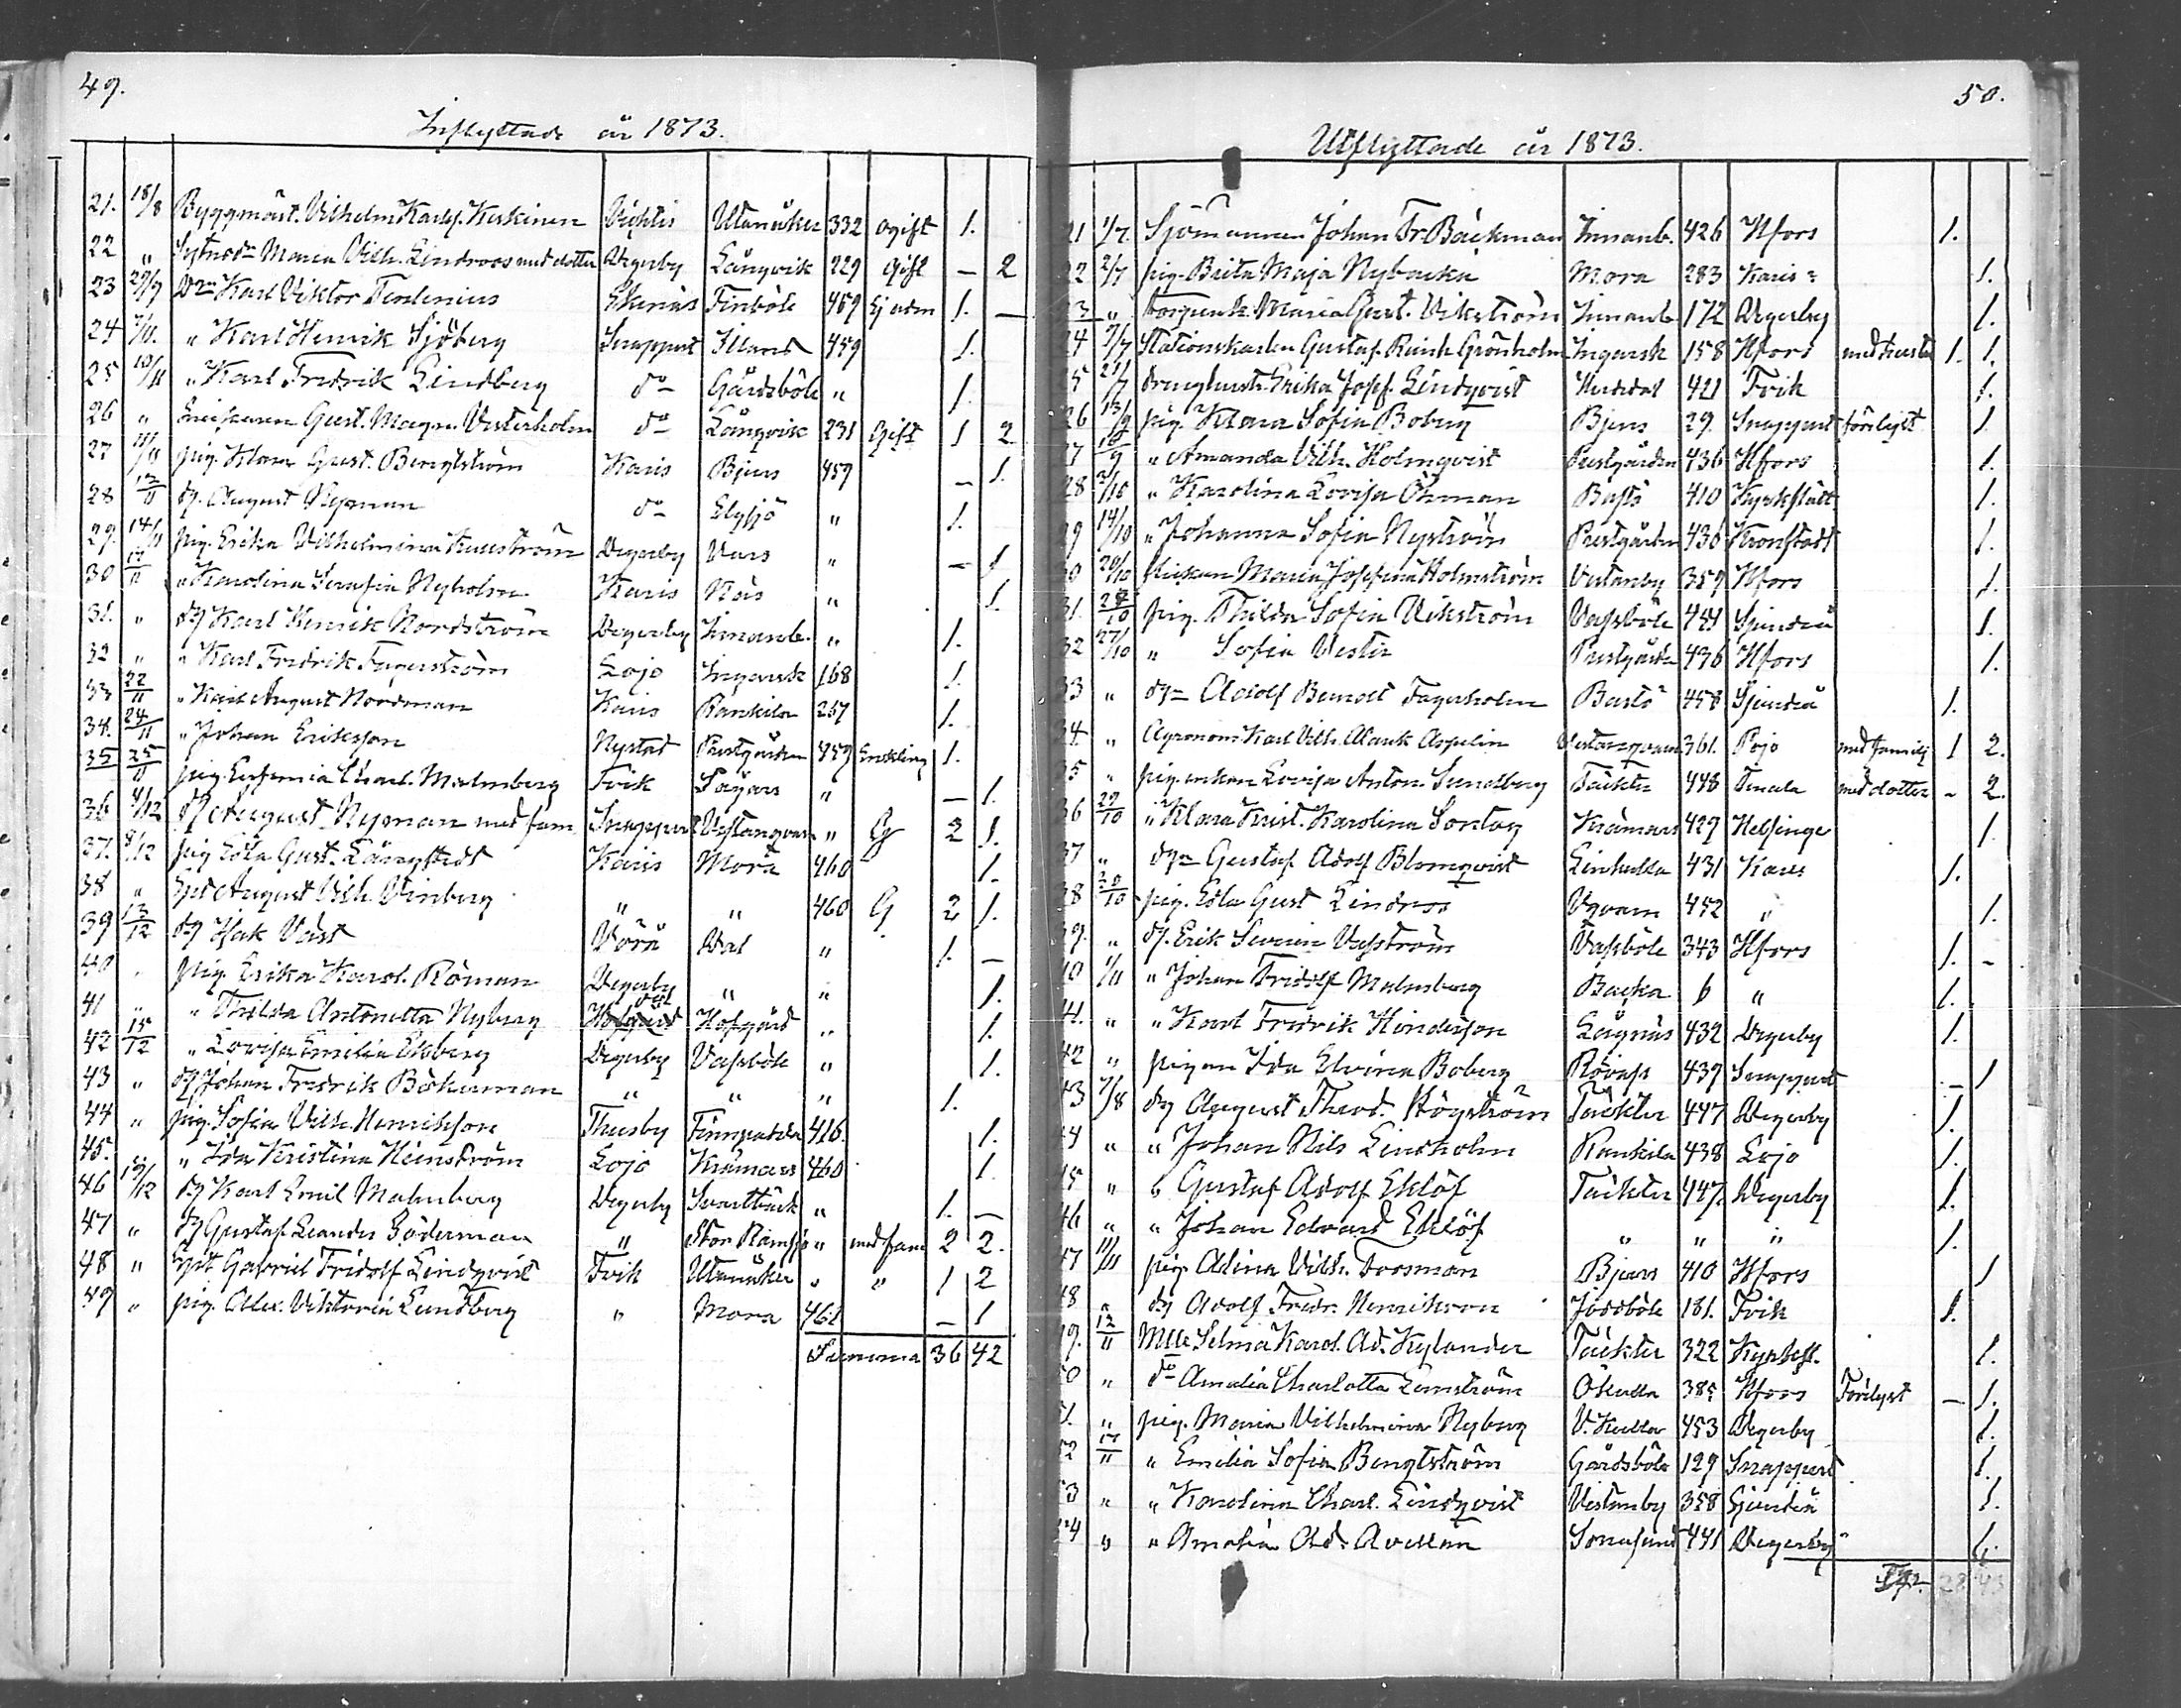 49.
Inflyttade år 1873.
21. 18/8 Byggmäst. Vilhelm Karlsf. Keskinen Vichtis Utanåker 332 ogift 1.
22 " Maria Vilh. Lindroos med dotter Degerby Långvik 229 gift — 2
23 29/9 Karl Viktor Ekenäs Finböle 459 Ej adm 1. —
24 7/11. " Karl Henrik Sjöberg Snappert 459 1.
25 10/11 " Karl Fredrik Lindberg do Gårdsböle " 1.
26 " Gust. Magn. Vesterholm do Långvik 231 Gift 1 2
27 11/11 pig. Klara Gust. Bengtström Karis Bjers 459 — 1.
28 13/11 dg. August Nyman do Elgsjö " 1.
29. 14/11 pig. Erika Vilhelmina Degerby Vars " — 1
30 17/11 " Karolina Serafia Nyholm Karis Näs " 1.
31. " dg Karl Henrik Nordström Degerby Innanb. " 1.
32 " " Karl Fredrik Fagerström Lojo Ingarsk 168 1.
33 22/11 " Karl August Nordman Karis Rankila 257 1.
34. 24/11 " Johan Eriksson Nystad Prestgården 459 Enkling 1.
35 25/11 pig. Eufemia Charl. Malmberg Fvik Sågars " — 1.
36 4/12 dg August Nyman med fam Snappert Vestanqvarn " G 2 1.
37. 8/12 pig Edla Gust. Långstedt Karis Mora 460 1.
38 " August Vilh. Vinberg " " 460 G 2 1.
39 13/12 dg Isak Väst Vörå Dal " 1. —
40 " pig. Erika Karol. Röman Degerby " " 1.
41 " " Thilda Antonetta Nyberg Hofgård " 1.
42 15/12 " Lovisa Emilia Ekberg Degerby Vassböle " 1.
43 " dg Johan Fredrik Böckerman " " " 1.
44 " pig. Sofia Vilh. Henriksson Thusby Finnpada 416. 1.
45. " " Ida Kristina Heinström Lojo Krämars 460 1.
46 19/12 dg Karl Emil Malmberg Degerby Svartbäck " 1. —
47 " dg Gustaf Leander Söderman " Stor Ramsjö " med fam 2 2.
48 " Gabriel Fridolf Lindqvist Fvik Utanåker " " 1 2
49 " pig. Alex. Viktoria Lundberg " Mora 461 — 1
Summa 36 42
50.
Utflyttade år 1873.
21 1/7. Sjömannen Johan Fr. Bäckman Innanb. 426 Hfors 1.
22 2/7 pig. Brita Maja Nybacka Mora 283 Karis 1.
23 " Maria Gust. Vikström Innanb. 172 Degerby 1.
24 9/7 Stationskarlen Gustaf Reinh Grönholm Ingarsk 158 Hfors med hustru 1. 1.
25 21/7 Erika Josef. Lindqvist 421 Fvik 1.
26 13/9 pig. Klara Sofia Boberg Bjers 29. Snappert förlyst 1.
27 16/9 " Amanda Vilh. Holmqvist Prestgården 436 Hfors 1.
28 2/10 " Karolina Lovisa Öhman Bastö 410 Kyrkslätt 1.
29 14/10 " Johanna Sofia Nyström Prestgården 436 Kronstadt 1.
30 20/10 flickan Maria Josefina Holmström Vestanby 359 Hfors 1.
31. 24/10 pig. Thilda Sofia Vikström Vassböle 454 Sjundeå 1.
32 27/10 " Sofia Vester Prestgården 436 Hfors 1.
33 " dgn Adolf Berndt Fagerholm Bastö 458 Sjundeå 1.
34. " Agronom Karl Vilh. Alarik Aspelin Vestanqvarn 361. Pojo med familj 1 2.
35 " pig. enkan Lovisa Anton. Sundberg Täckter 448 Tenala med dotter - 2.
36 29/10 " Klara Krist. Karolina Sontag Krämars 429 Helsinge 1.
37 " dgn Gustaf Adolf Blomqvist Linkulla 431 Karis 1.
38 30/10 pig. Edla Gust Lindroos Vqvarn 452 " 1.
39. " dg. Erik Severin Vasström Vassböle 343 Hfors 1. -
40 1/11 " Johan Fridolf Malmberg Backa 6 " 1.
41. " " Karl Fredrik Hindersson Lågnäs 432 Degerby 1.
42 " pigan Ida Elvira Boberg Rövass 439 Snappert — 1
43 7/8 dg August Theod. Högström Täckter 447 Degerby 1.
44 " " Johan Nils Lindholm Rankila 438 Lojo 1.
45 " " Gustaf Adolf Eklöf Täckter 447. Degerby 1.
46 " " Johan Edvard Eklöf " " " 1.
47 11/11 pig. Adina Vilh. Forsman Bjers 410 Hfors 1
48 " dg Adolf Fredr. Henriksson Joddböle 181. Fvik 1.
49. 12/11 Mlle Selma Karol. Ad. Kylander Täckter 322 Kyrksl. 1.
50 " do Amalia Charlotta Lemström Ökulla 385 Hfors Förlyst — 1.
51. " pig. Maria Vilhelmina Nyberg V. Kulla 453 Degerby 1.
52 17/11 " Emilia Sofia Bengtström Gårdsböle 129 Snappert 1.
53 " " Karolina Charl. Lindqvist Vestanby 358 Sjundeå 1.
54 " " Amalia Ad. Avellan 441 Degerby 1.
28 43